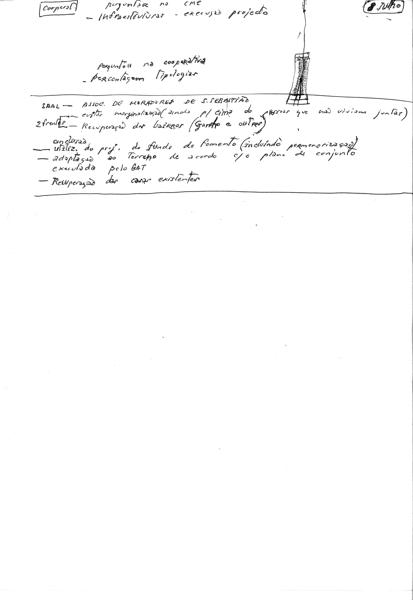 perguntar na CME
Cooperat.
8 Julho
- Infraestruturas - execução projecto
perguntar na cooperativa
- percentagem tipologias
SAAL — ASSOC. DE MORADORES DE S. SEBASTIÃO
— evitar marginalização (ainda p/ cima de pessoas que não viviam juntas)
2 frentes — Recuperação dos bairros ( e outros)
— utiliz. do proj. do fundo de fomento (incluindo pormenorização)
— adaptação ao terreno de acordo c/ o plano de conjunto
executada pelo GAT
— Recuperação das casas existentes